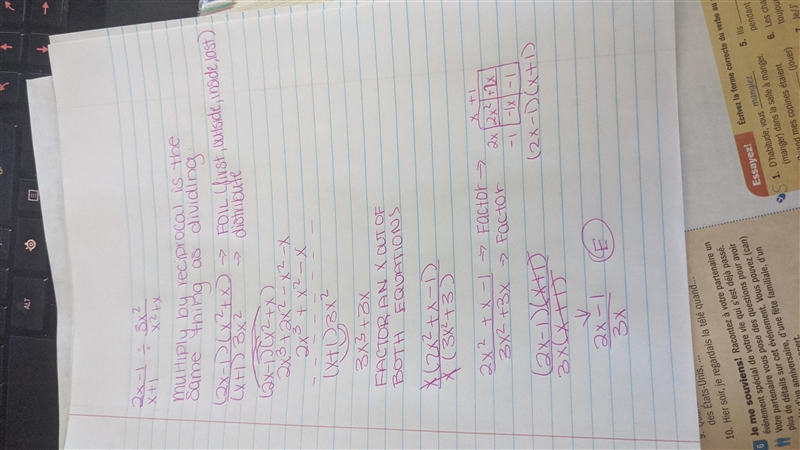 2x-1 / x+1 ÷ 3x² / x²+x
multiply by reciprocal is the
same thing as dividing
(2x-1)(x²+x) → FOIL (first, outside, inside, last)
(x+1) 3x² → distribute
(2x-1)(x²+x)
2x³+2x²-x²-x
2x³+x²-x
(x+1)3x²
3x³+3x
FACTOR AN X OUT OF
BOTH EQUATIONS
x(2x²+x-1)
x(3x²+3)
2x²+x-1 → Factor →
3x²+3x → Factor
x +1
2x 2x² +2x
-1 -1x -1
(2x-1)(x+1)
(2x-1)(x+1)
3x(x+1)
2x-1
3x
E
ALT
des États-Unis, ...
10. Hier soir, je regardais la télé quand...
Je me souviens! Racontez à votre partenaire un
événement spécial de votre vie qui s'est déjà passé.
Votre partenaire vous pose des questions pour avoir
plus de détails sur cet événement. Vous pouvez (can)
d'un anniversaire, d'une fête familiale, d'un
Essayez!
Écrivez la forme correcte du verbe au
1. D'habitude, vous mangiez
(manger) dans la salle à manger.
und mes copines étaient
(jouer)
5. Ils
pendant
6. Les cha
toujour
7. Je/J'